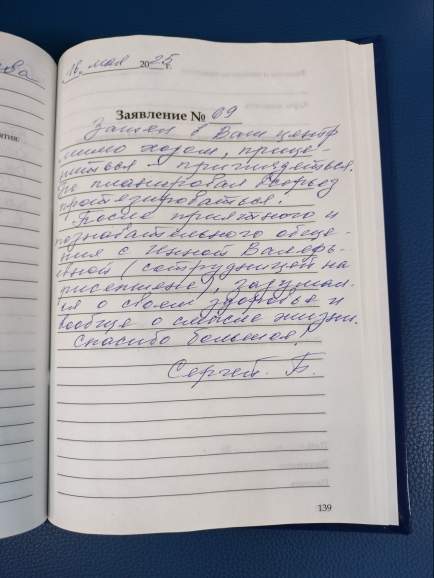 ова
16 мая 2025 г.
Заявление № 09
Зашел в Ваш центр
мимо ходом, прице-
ниться - приглядеться.
Не планировал всерьез
протезироваться!
После приятного и
познавательного обще-
ния с Инной Валерь-
евной (сотрудницей на
ресепшене), задумал-
ся о своем здоровье и
вообще о смысле жизни.
Спасибо большое!
Сергей. Б.
139